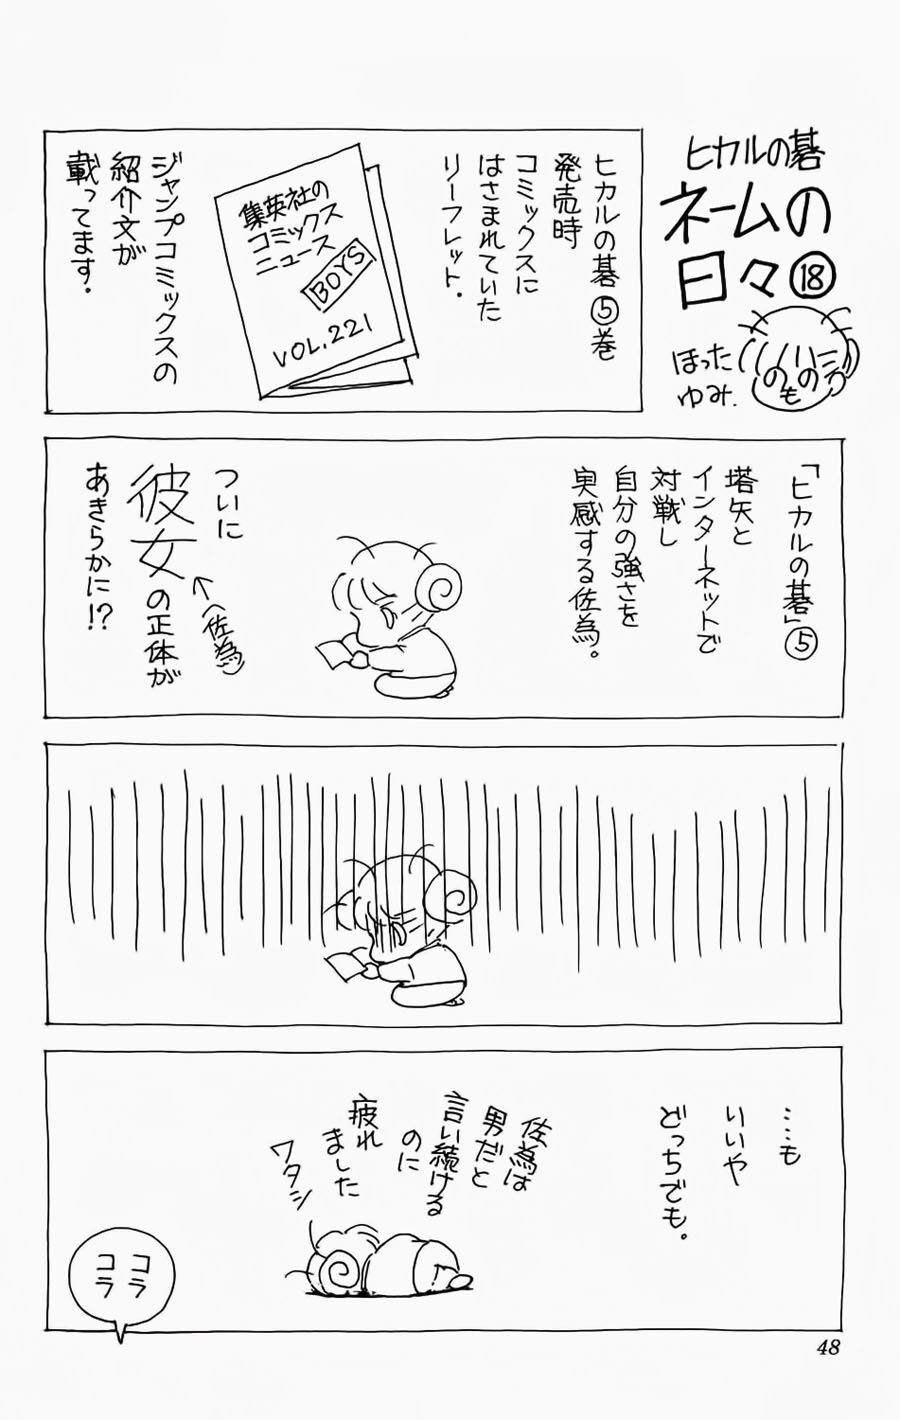 ヒカルの碁
ネームの
日々⑱
ほった
ゆみ.
へのへのもへじ
ヒカルの碁⑤巻
発売時
コミックスに
はさまれていた
リーフレット.
集英社の
コミックス
ニュース
BOYS
VOL.221
ジャンプコミックスの
紹介文が
載ってます.
「ヒカルの碁」⑤
塔矢と
インターネットで
対戦し
自分の強さを
実感する佐為。
ついに
彼女の正体が
(佐為)
あきらかに!?
……も
いいや
どっちでも。
佐為は
男だと
言い続ける
のに
疲れ
ました
ワタシ
コラ
コラ
48